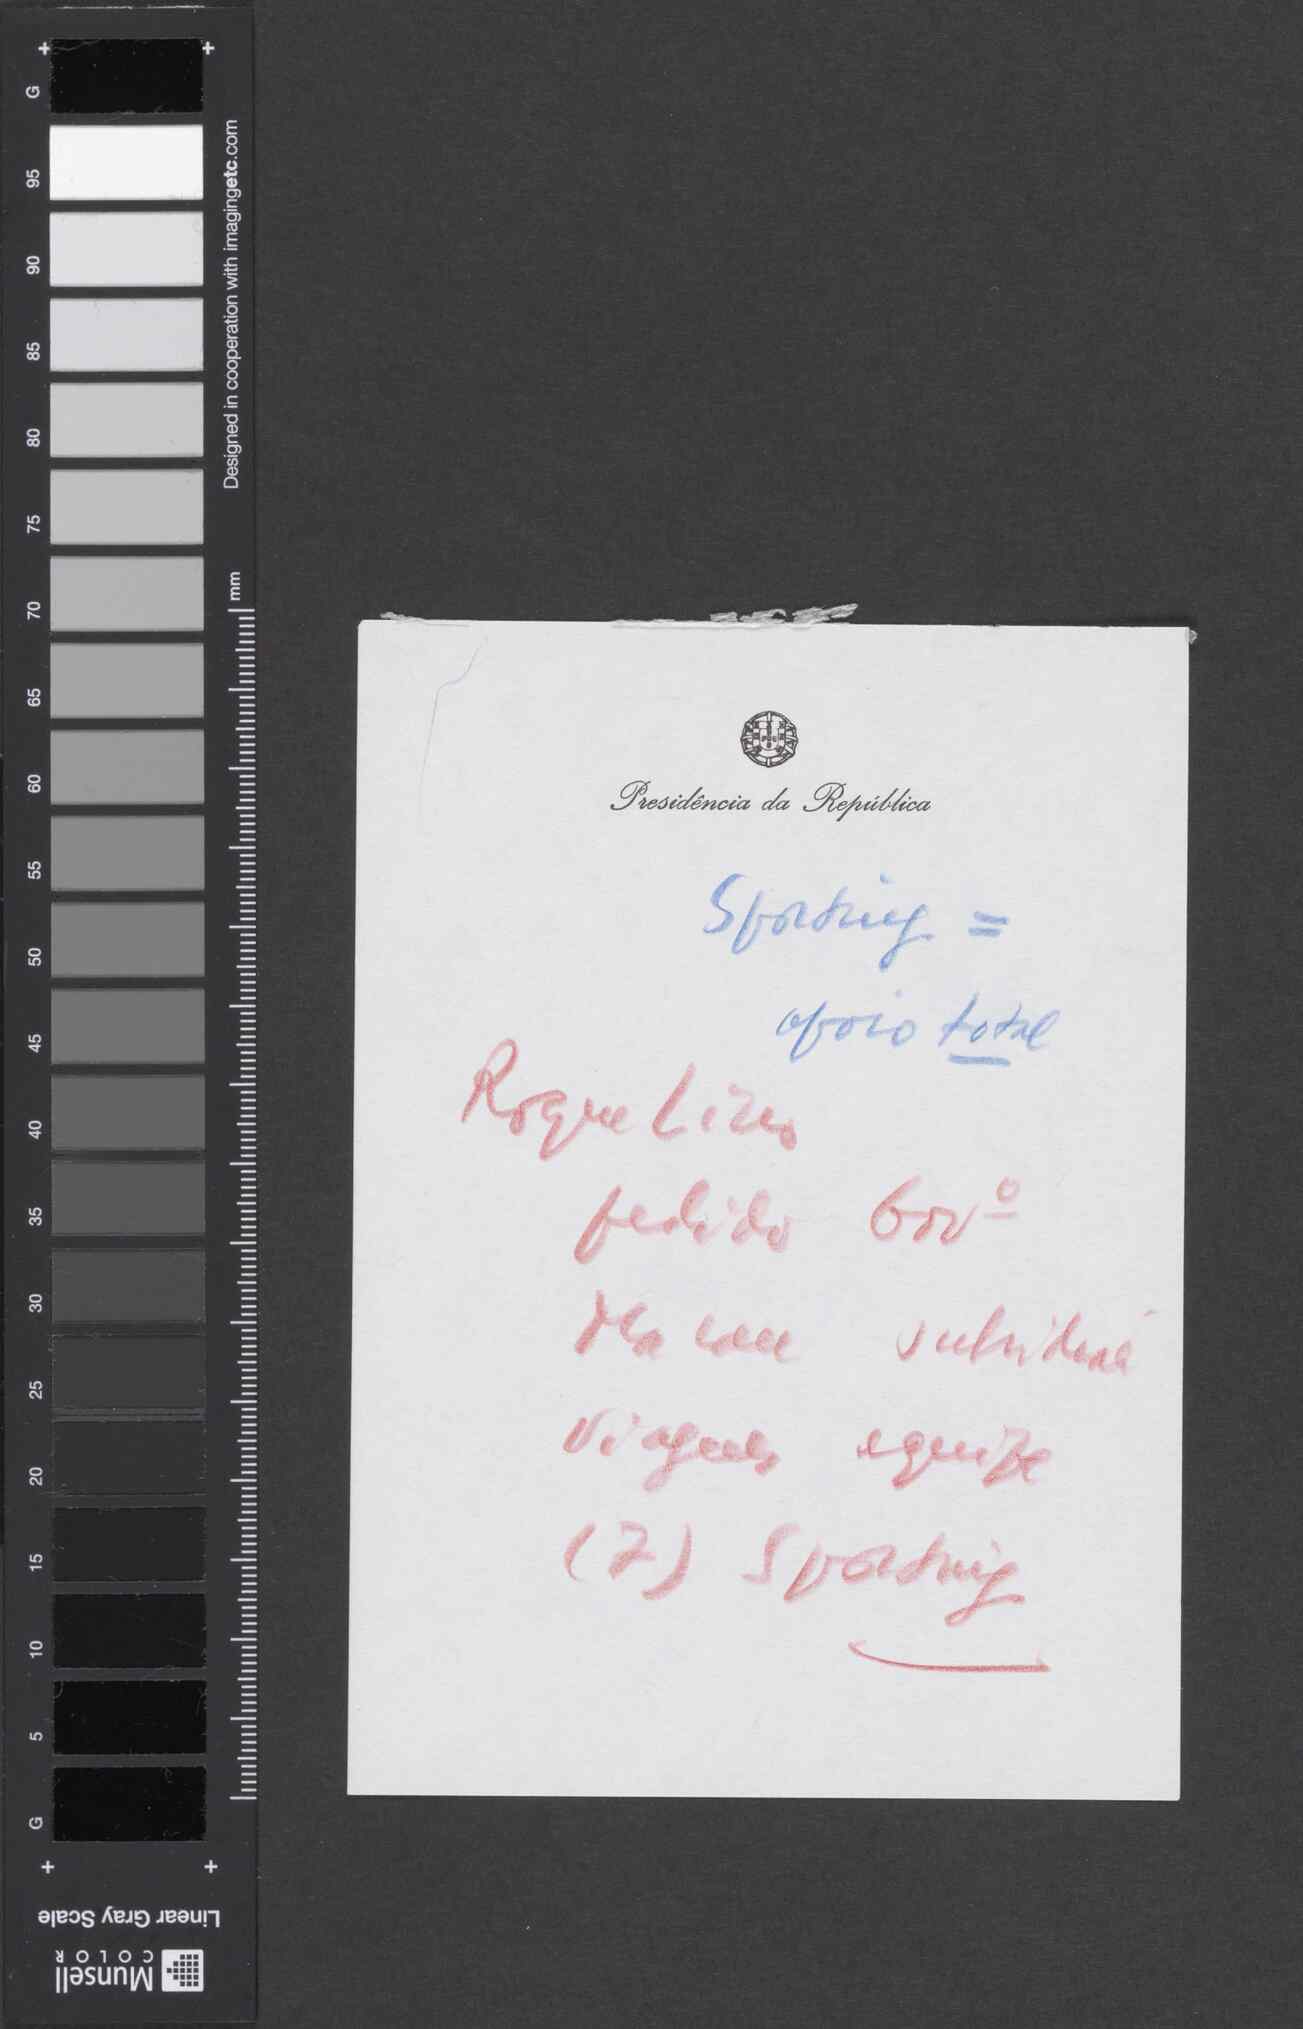 Presidência da República
Sporting =
apoio total
Roque Lino
pedido Govº
Macau
viagens equipa
(7) Sporting
G
95
90
85
80
75
70
65
60
55
50
45
40
35
30
25
20
15
10
5
G
Designed in cooperation with imagingetc.com
mm
Linear Gray Scale
Munsell
COLOR